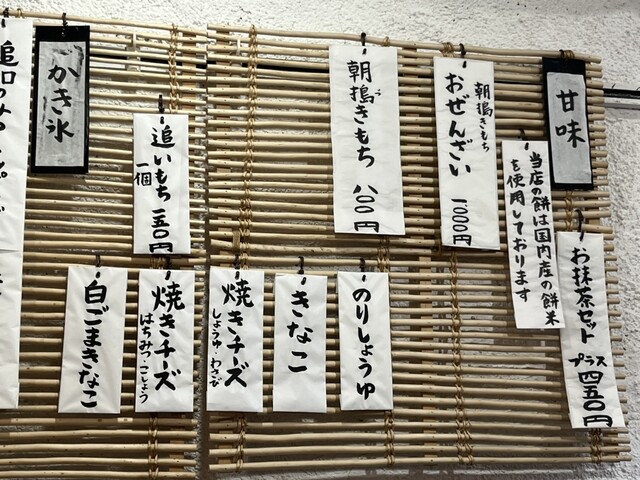 甘味
当店の餅は国内産の餅米
を使用しております
お抹茶セット
プラス四五〇円
朝搗きもち
おぜんざい
一、〇〇〇円
朝搗きもち 八〇〇円
のりしょうゆ
きなこ
焼きチーズ
しょうゆ・わさび
追いもち
一個 一五〇円
焼きチーズ
はちみつ・こしょう
白ごまきなこ
かき氷